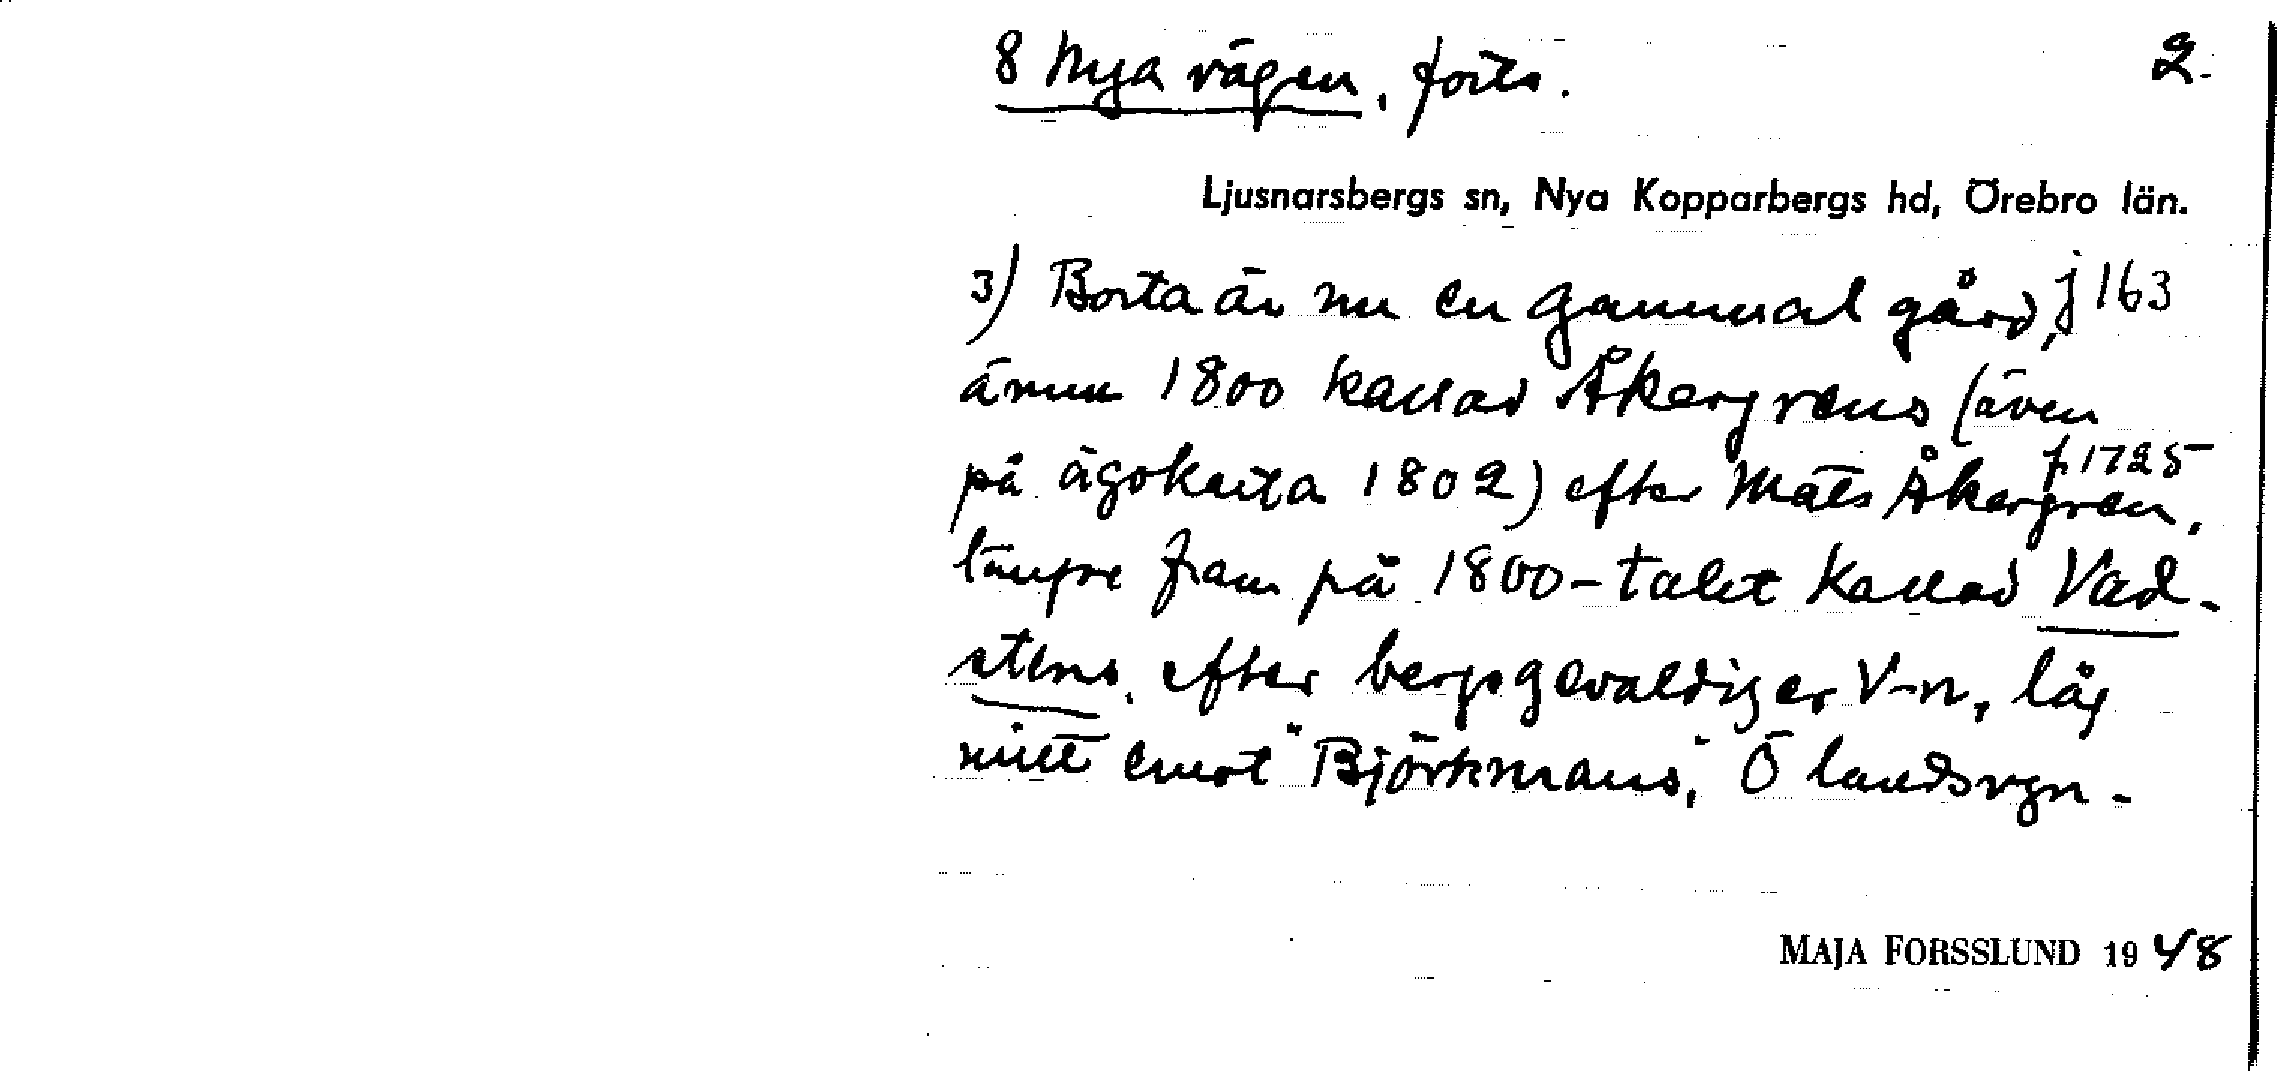 8 Nya vägen, forts. 2.
Ljusnarsbergs sn, Nya Kopparbergs hd, Örebro län.
3) Borta är nu en gammal gård, j 163
ännu 1800 kallad Åkergrens (även
på ägokarta 1802) efter Mats Åkergren, f. 1725
längre fram på 1800-talet kallad Vad-
stens, efter bergsgevaldiger V-n, låg
mitt emot "Björkmans", Ö landsvgn.
MAJA FORSSLUND 1948